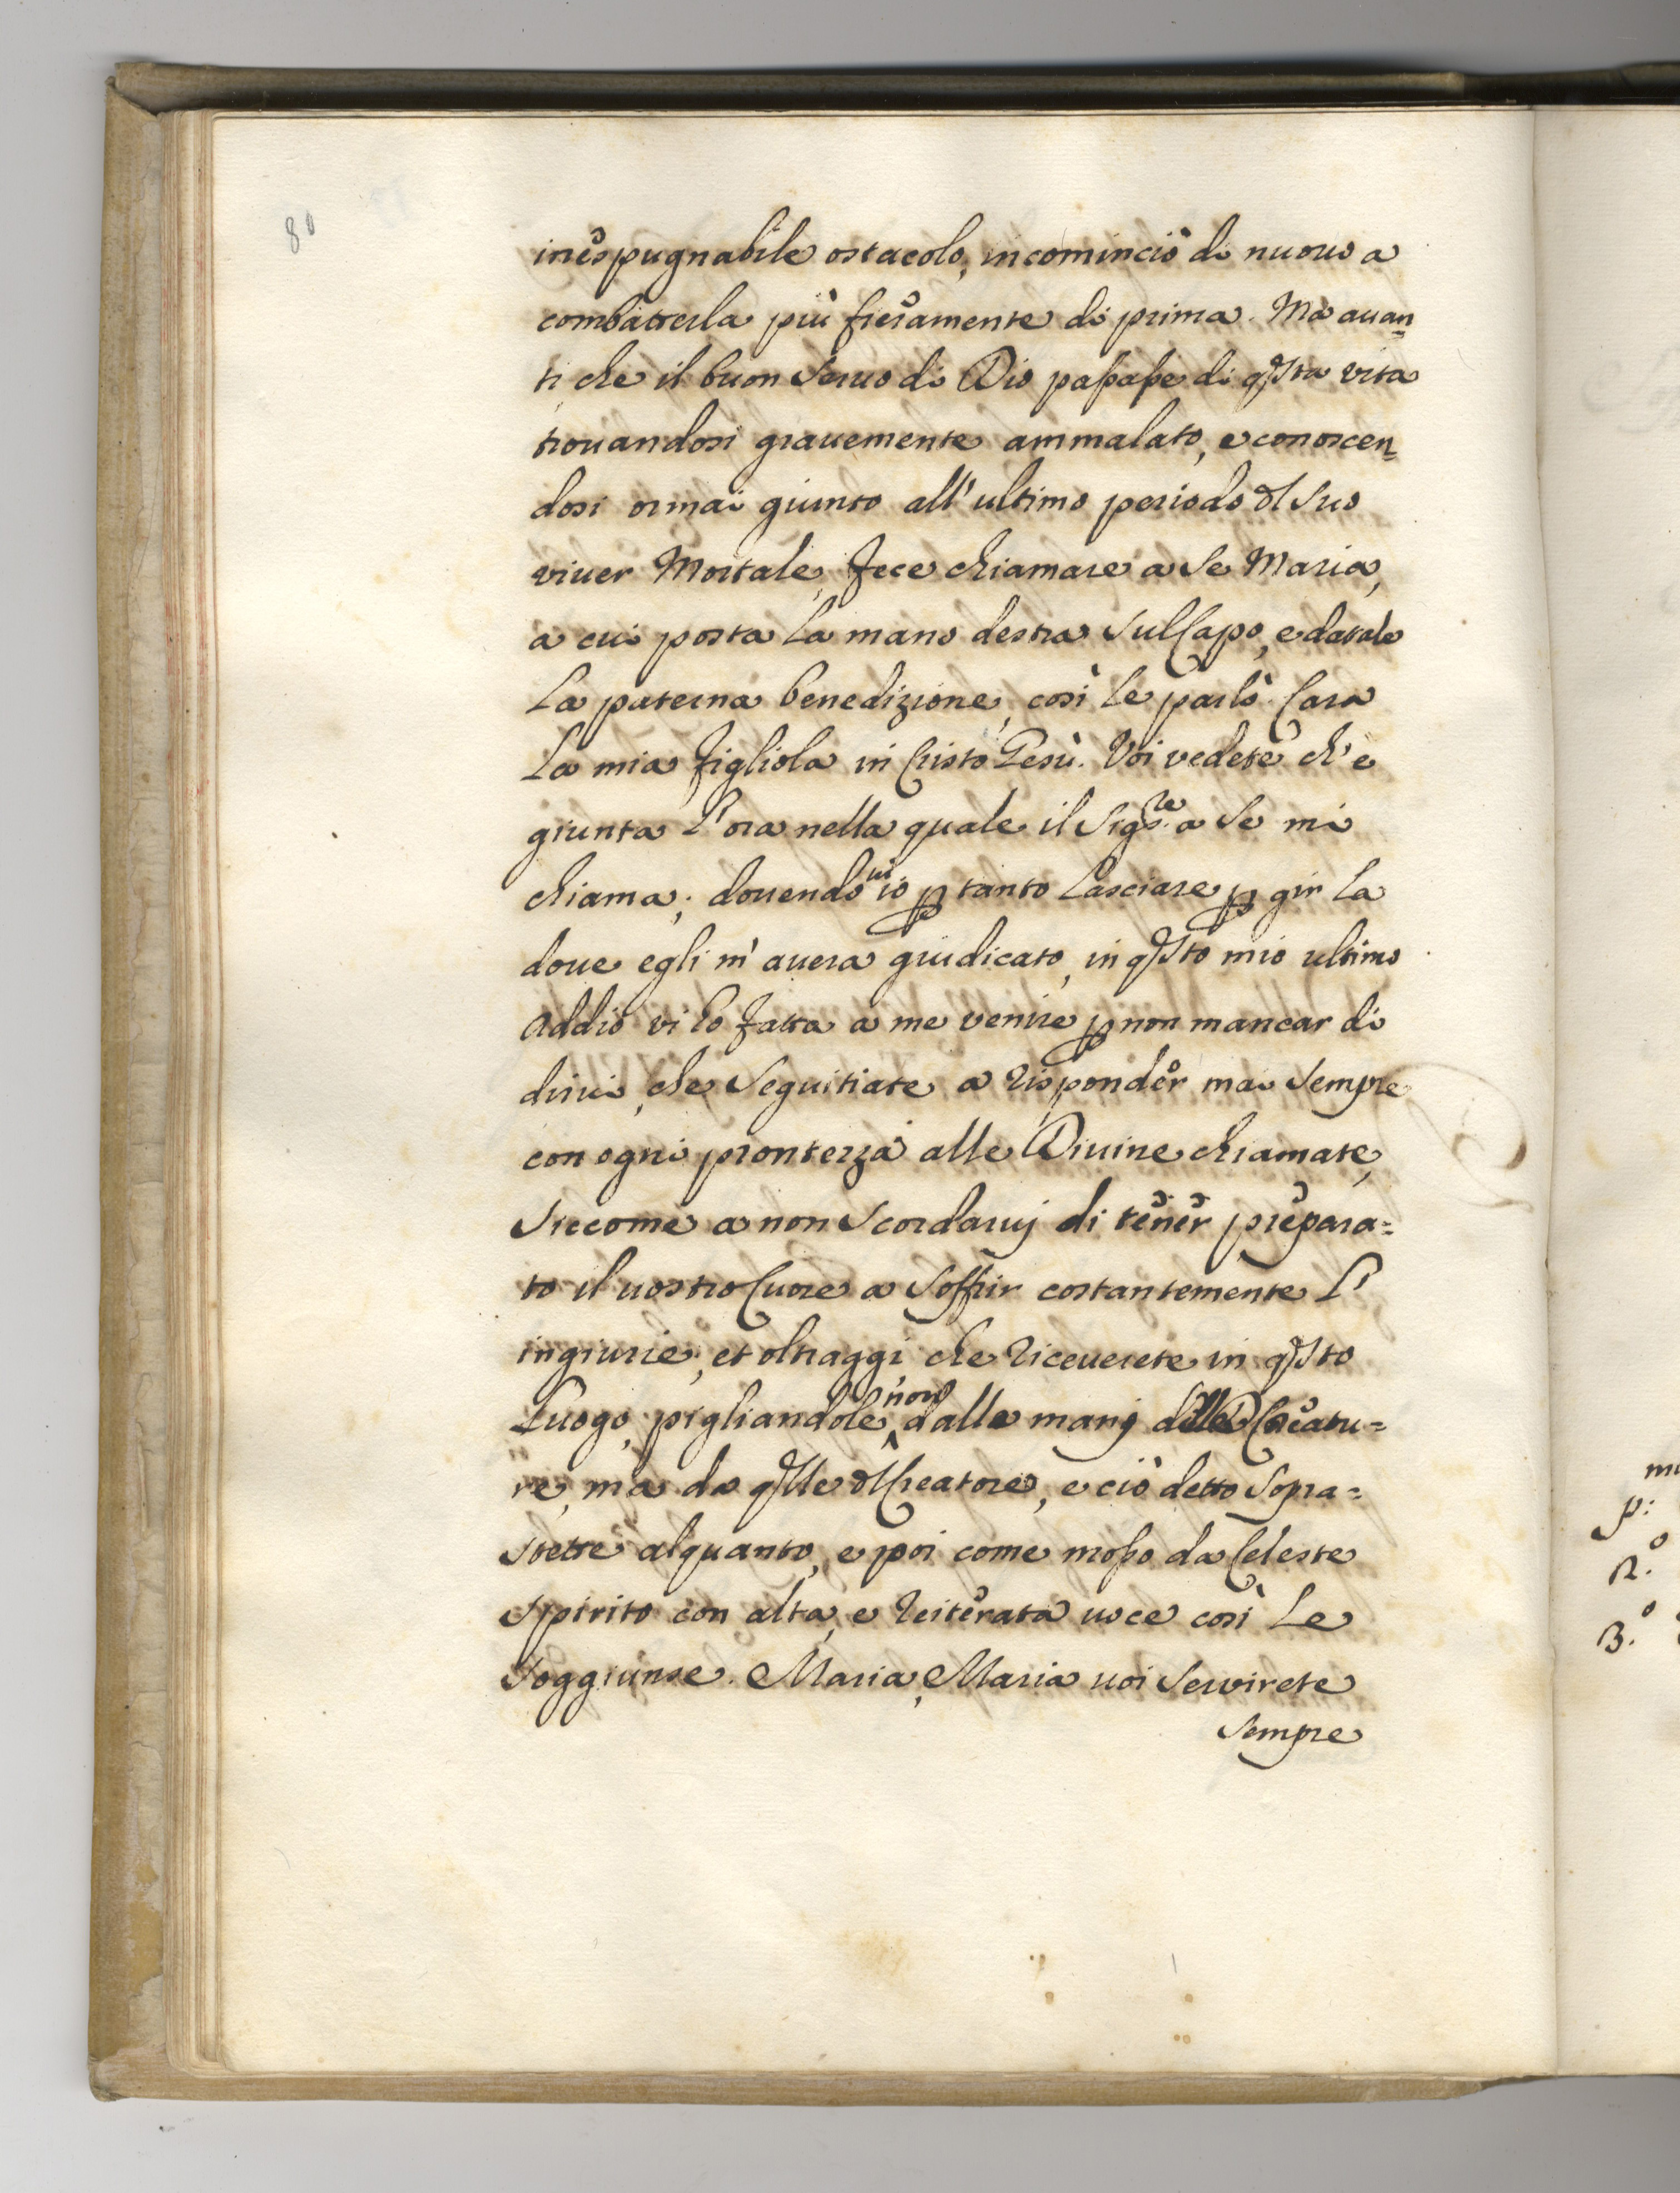 80
inespugnabile ostacolo, incominciò di nuouo a
combatterla più fieramente di prima. Mà auan=
ti che il buon Seruo di Dio passasse di qsta vita
trouandosi grauemente ammalato, e conoscen=
dosi ormai giunto all'ultimo periodo dl suo
viuer Mortale, fece chiamare a se Maria,
a cui posta la mano destra sul Capo, e datale
la paterna benedizione, così le parlò. Cara
la mia figliola in Cristo Gesù. Voi vedete ch'e
giunta l'ora nella quale il Sigre. a se mi
chiama; douendoui io p tanto lasciare p gir la
doue egli m'auera giudicato, in qsto mio ultimo
Addio vi ho fatta a me venire p non mancar di
dirui, che seguitiate a risponder mai sempre
con ogni prontezza alle Diuine chiamate,
siccome a non scordaruj di tener prepara=
to il uostro Cuore a soffrir costantemente l'
ingiurie, et oltraggi che riceuerete in qsto
Luogo, pigliandole non dalle manj delle Creatu=
re, ma da qlle dl Creatore, e ciò detto sopra=
stette alquanto, e poi come mosso da Celeste
spirito con alta, e reiterata uoce così le
soggiunse. Maria, Maria uoi servirete
sempre
p:
2.º
3.º